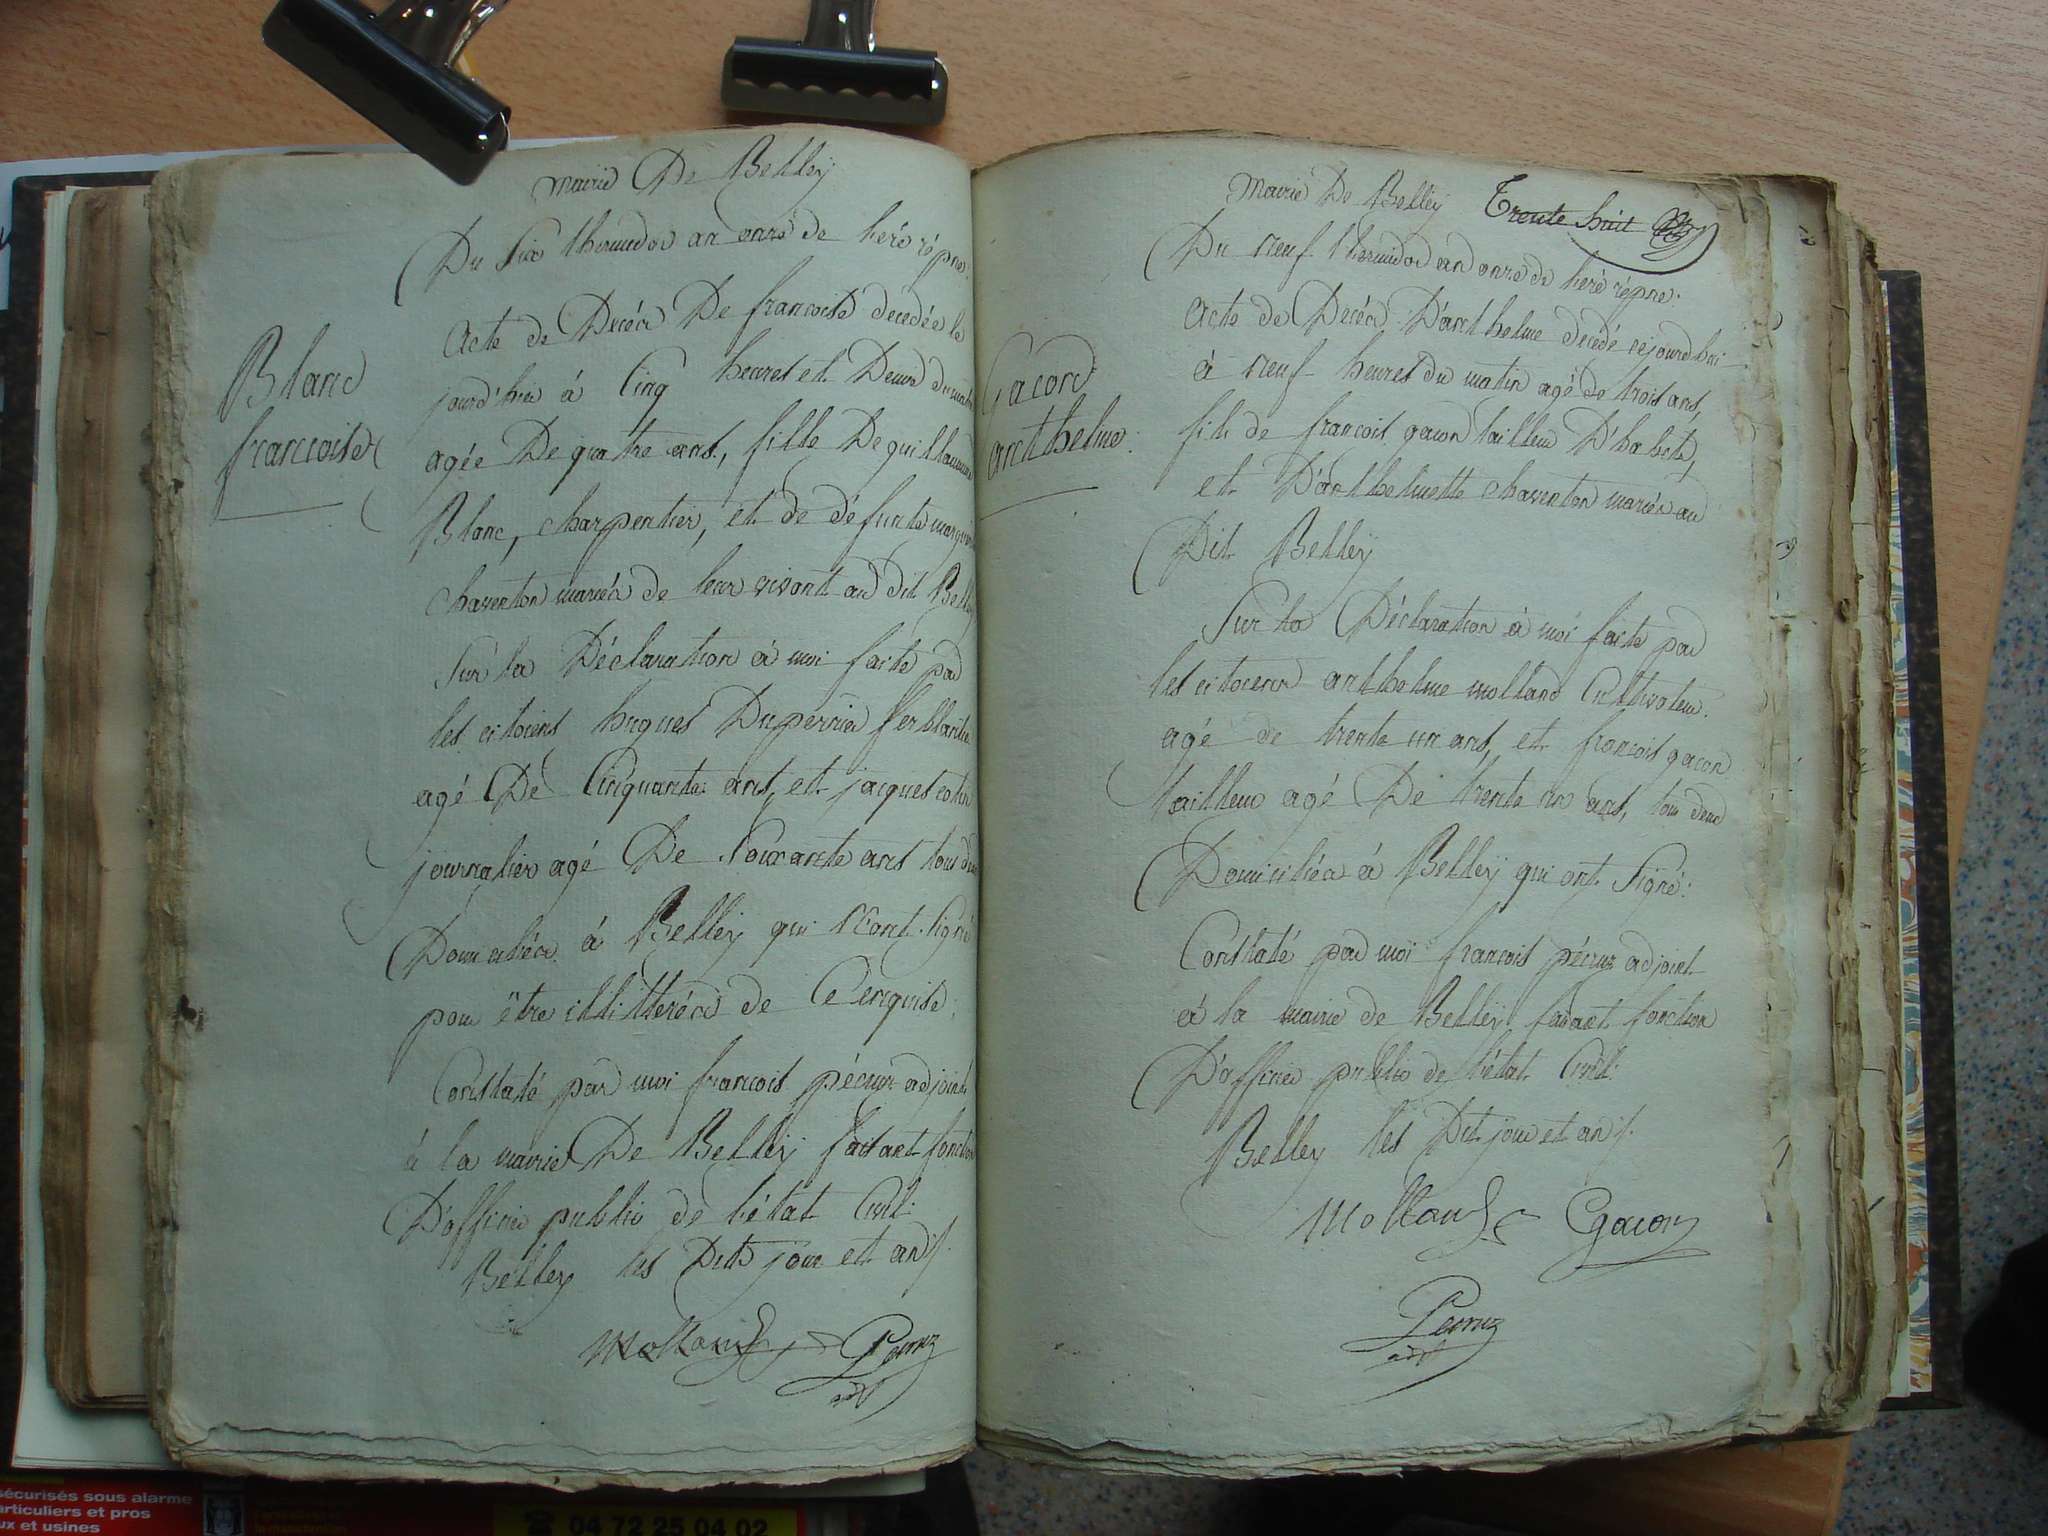 mairie De Belley
Du Six thermidor an onze de l'ère répne:
Blanc
françoise
Acte de Décéa De françoise decedée le
jourd'hui à Cinq heures et Demie du matin
agée De quatre ans, fille De guillaume
Blanc, charpentier, et de défunte marguerite
chaventon mariés de leur vivant au dit Belley
Sur la Déclaration à moi faite par
les citoiens hugues Duperrier ferblantier
agé De Cinquante ans, et jacques
journalier agé De Soixante ans tous deux
Domiciliés à Belley qui n'ont signé
pour être illitterés de Ce enquise;
Constaté par moi françois pécruz adjoint
à la mairie De Belley faisant fonction
D'officier public de l'état Civil:
Belley les Dits jour et an
Molland Pecruz
adjt
Mairie De Belley Trente huit
Du neuf thermidor an onze de l'ère répne:
Gacon
anthelme:
Acte de Décéa D'anthelme decedé cejourd'hui
à neuf heures du matin agé de trois ans,
fils de françois gacon tailleur D'habits,
et D'anthelmette chaventon mariés au
Dit Belley
Sur la Déclaration à moi faite par
les citoiens anthelme molland Cultivateur
agé de trente un ans, et françois gacon
tailleur agé De trente un ans, tous deux
Domiciliés à Belley qui ont Signé:
Constaté par moi françois pécruz adjoint
à la mairie de Belley faisant fonction
D'officier public de l'état Civil:
Belley les Dit jour et an
Molland Gacon
Pecruz
adjt
sécurisés sous alarme
articuliers et pros
ux et usines
☎ 04 72 25 04 02